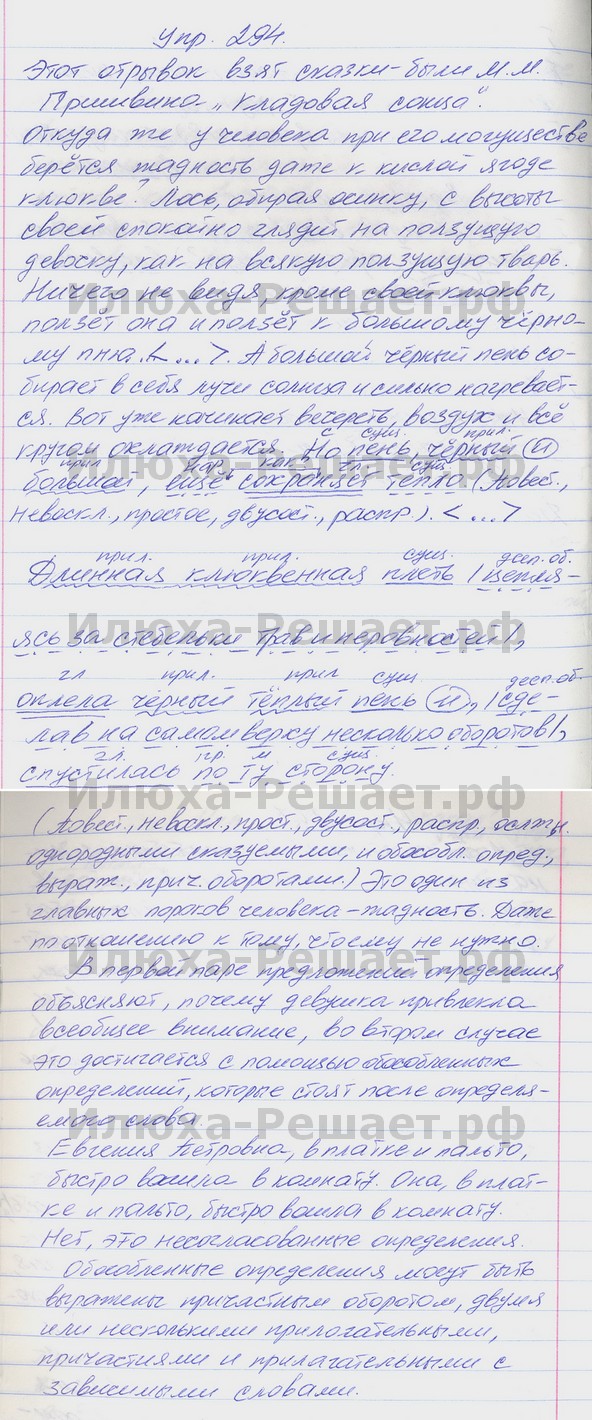 Упр. 294.
Этот отрывок взят сказки-были М.М.
Пришвина „Кладовая сонца".
Откуда же у человека при его могуществе
берётся жадность даже к кислой ягоде
клюкве? Лось, обирая осинку, с высоты
своей спокойно глядит на ползущую
девоску, как на всякую ползущую тварь.
Ничего не видя, кроме своей клюквы,
ползёт она и ползёт к большому чёрно-
му пню. <...>. А большой чёрный пень со-
бирает в себя лучи солнца и сильно нагревает-
ся. Вот уже начинает вечереть, воздух и всё
с сущ. прил.
кругом охлаждается. Но пень, чёрный и
прил. нар. как? гл. сущ.
большой, ещё сохраняет тепло. (Повест.,
невоскл., простое, двусост., распр.). <...>
прил. прил. сущ. дееп. об.
Длинная клюквенная плеть, | цепля-
ясь за стебельки трав и неровностей|,
гл прил. прил сущ деел. об.
оплела чёрный тёплый пень и, |сде-
лав на самом верху несколько оборотов|,
гл. пр. м сущ.
спустилась по ту сторону.
(Повест., невоскл., прост., двусост., распр, ослжн.
однородными сказуемыми, и обособл. опред.,
выраж., прич. оборотами.) Это один из
главных пороков человека - жадность. Даже
по отношению к тому, что ему не нужно.
В первой паре предложений определения
объясняют, почему девушка привлекла
всеобщее внимание, во втором случае
это достигается с помощью обособленных
определений, которые стоят после определя-
емого слова.
Евгения Петровна, в платке и пальто,
быстро вошла в комнату. Она, в плат-
ке и пальто, быстро вошла в комнату.
Нет, это несогласованные определения.
Обособленные определения могут быть
выражены причастным оборотом, двумя
или несколькими прилогательными,
причастиями и прилагательными с
зависимыми словами.
Илюха-Решает.рф
Илюха-Решает.рф
Илюха-Решает.рф
Илюха-Решает.рф
Илюха-Решает.рф
Илюха-Решает.рф
Илюха-Решает.рф